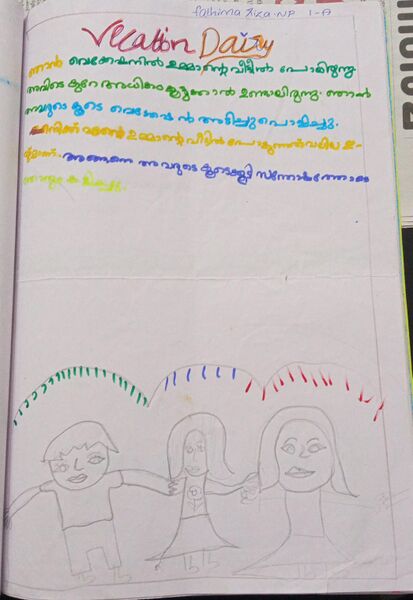 fathima riza.NP 1-A
Vecation Daisy
ഞാൻ വെക്കേഷനിൽ ഉമ്മാന്റെ വീട്ടിൽ പോയിരുന്നു.
അവിടെ കുറേ അധികം കൂട്ടുക്കാർ ഉണ്ടായിരുന്നു. ഞാൻ
അവരുടെ കൂടെ വെക്കേഷൻ അടിച്ചു പൊളിച്ചു.
എനിക്ക് ഉമ്മാന്റെ വീട്ടിൽ പോകുന്നത് വലിയ ഇ-
ഷ്ടമാണ്. അങ്ങനെ അവരുടെ കൂടെ സന്തോഷത്തോടെ
കളിച്ചു.